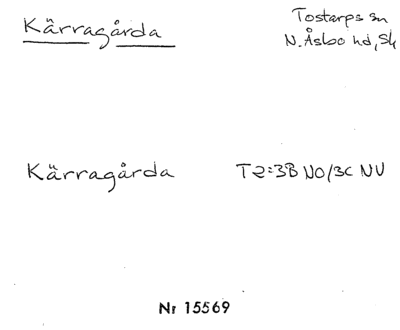 Kärragårda
Tostarps sn
N. Åsbo hd, Sk
Kärragårda
T2:3B NO/3C NV
Nr 15569